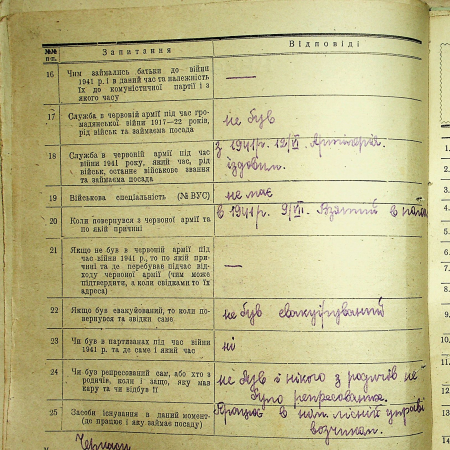 №№ п-п.
Запитання
Відповіді
16
Чим займались батьки до війни
1941 р. і в даний час та належність
їх до комуністичної партії і з
якого часу
17
Служба в червоній армії під час гро-
мадянської війни 1917—22 років,
рід військ та займаєма посада
не був
18
Служба в червоній армії під час
війни 1941 року, який час, рід
військ, останнє військове звання
та займаєма посада
з 1941 р. 12/VI Артилерія.
їздовим.
19
Військова спеціальність (№ ВУС)
не має
20
Коли повернувся з червоної армії та
по якій причині
в 1941 р. 9/VII. Взятий в
21
Якщо не був в червоній армії під
час війни 1941 р., то по якій при-
чині та де перебував підчас від-
ходу червоної армії (чим може
підтвердити, а коли свідками то їх
адреса)
22
Якщо був евакуйований, то коли по-
вернувся та звідки саме
не був евакуйруваний
23
Чи був в партизанах під час війни
1941 р. та де саме і який час
ні
24
Чи був репресований сам, або хто з
родичів, коли і защо, яку мав
кару та чи відбув її
не був і нікого з родичів не
було репресовано.
25
Засоби існування в даний момент
(де працює і яку займає посаду)
Працює в лісній управі
возчиком.